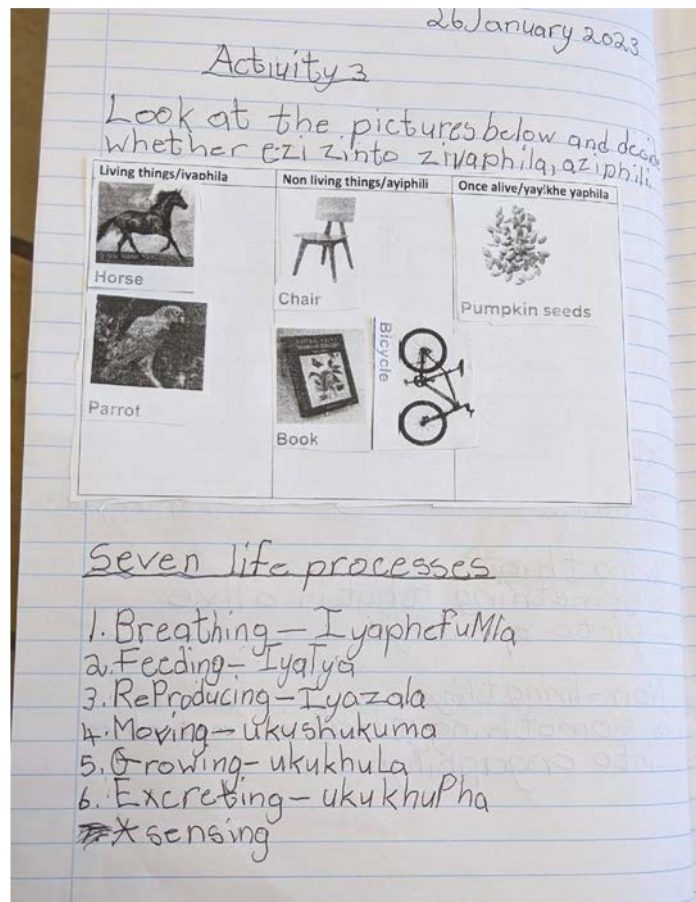 26 January 2023
Activity 3
Look at the pictures below and decide
whether ezi zinto ziyaphila, aziphili.
Living things/iyaphila
Non living things/ayiphili
Once alive/yayikhe yaphila
Horse
Chair
Pumpkin seeds
Parrot
Book
Bicycle
Seven life processes
1. Breathing – IyaphefuMla
2. Feeding – Iyatya
3. RePRoducing – Iyazala
4. Moving – ukushukuma
5. Growing – ukukhuLa
6. Excreting – ukukhuPha
* sensing